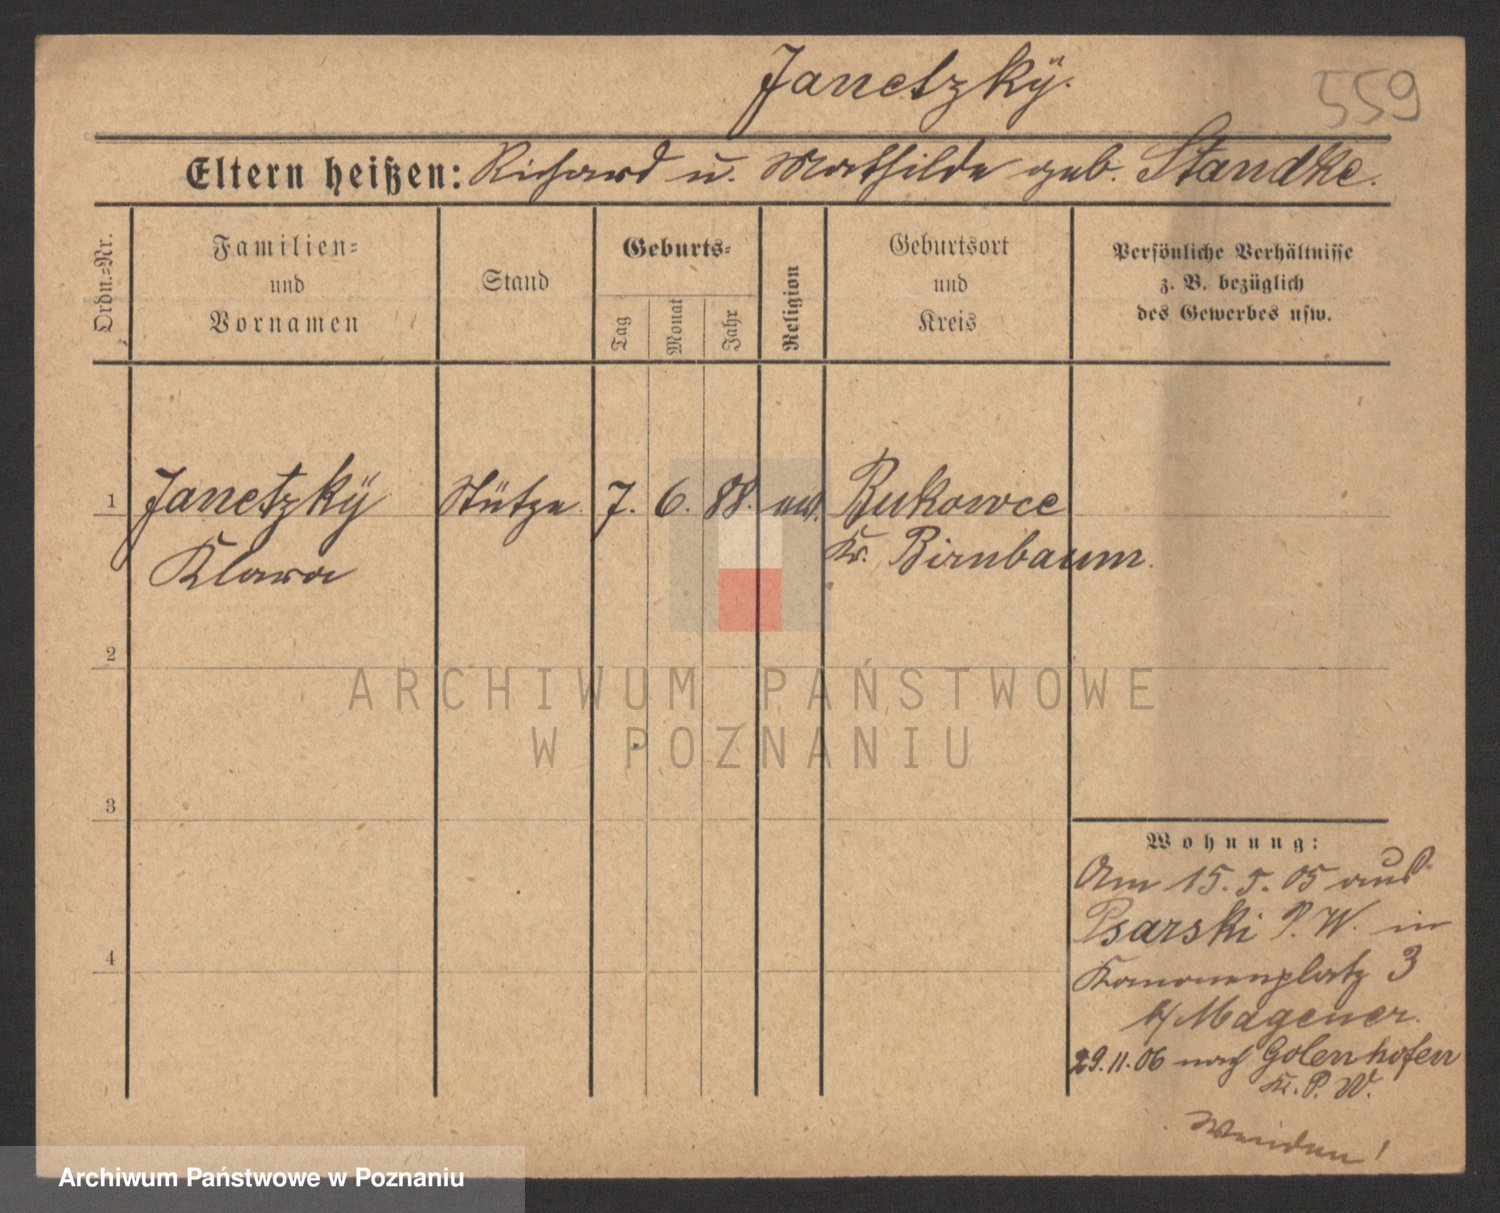 Janetzkÿ.
559
Eltern heißen: Richard u. Mathilde geb. Standke.
Ordn.=Nr.
Familien=
und
Vornamen
Stand
Geburts=
Tag
Monat
Jahr
Religion
Geburtsort
und
Kreis
Persönliche Verhältnisse
z. B. bezüglich
des Gewerbes usw.
1 Janetzkÿ Stütze. 7. 6. 88. Bukowce
Klara Kr. Birnbaum.
2
3
4
Wohnung:
Am 15. 5. 05 aus
Psarski P. W. in
Kanonenplatz 3
b/ Magener.
29.11.06 nach Golenhofen
Kr. P. W.
Wenden!
ARCHIWUM PAŃSTWOWE
W POZNANIU
Archiwum Państwowe w Poznaniu